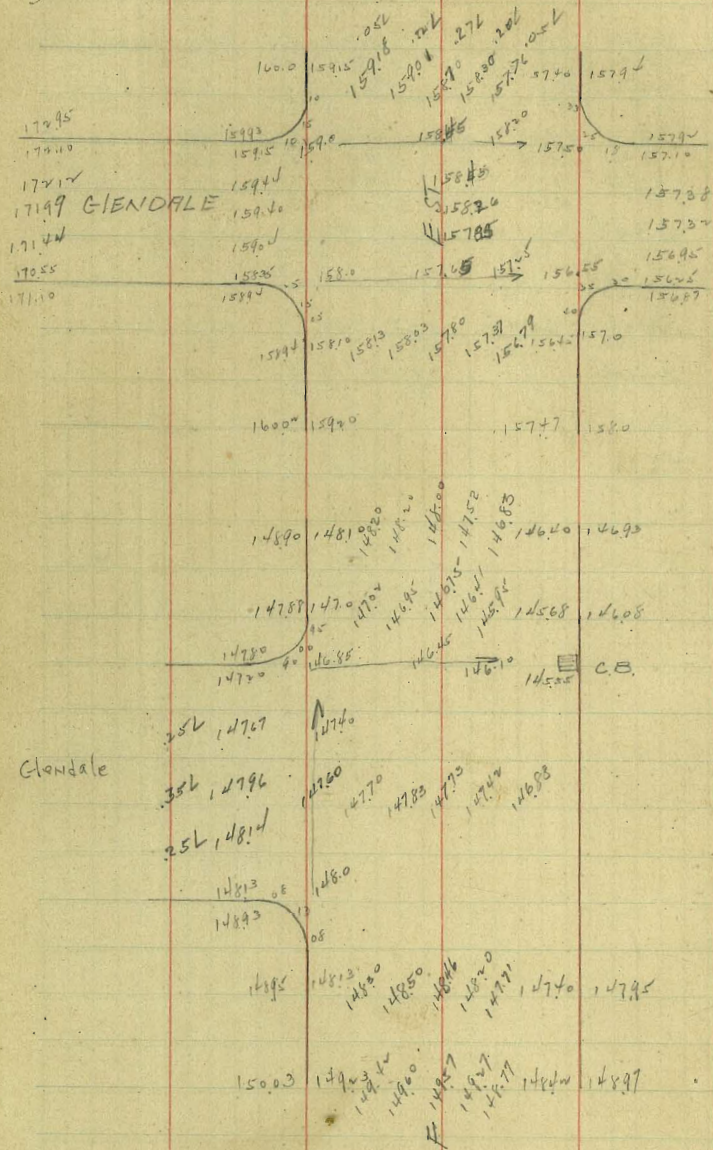 .05L .22L .27L .20L .05L
160.0 159.15 159.18 159.01 158.70 158.30 157.76 57.40 157.94
10
172.95 159.93 15 158.45 158.20 25 157.92
172.10 159.5 10 159.0 157.50 15 157.10
172.12 159.44 158.45 157.38
171.99 GLENDALE 159.40 158.26 157.32
171.44 159.04 157.85 156.95
170.55 158.35 25 158.0 157.65 157.25 156.55 20 156.25
171.10 158.94 15 25 156.87
25 20
158.94 158.10 158.13 158.03 157.80 157.37 156.79 156.42 157.0
160.02 159.20 157.47 158.0
148.90 148.10 148.20 148.20 148.00 147.52 146.83 146.40 146.93
147.88 147.0 147.02 146.95 146.75 146.41 145.95 145.68 146.08
95
147.80 00 146.85 146.45 146.10 C.B.
147.20 90 145.55
.25L 147.67 147.40
Glendale
.35L 147.96 147.60 147.70 147.83 147.73 147.42 146.83
.25L 148.14
148.0
148.13 08
148.93 13
08
148.95 148.13 148.30 148.50 148.46 148.20 147.71 147.40 147.95
150.03 149.23 149.42 149.60 149.57 149.27 148.77 148.42 148.97